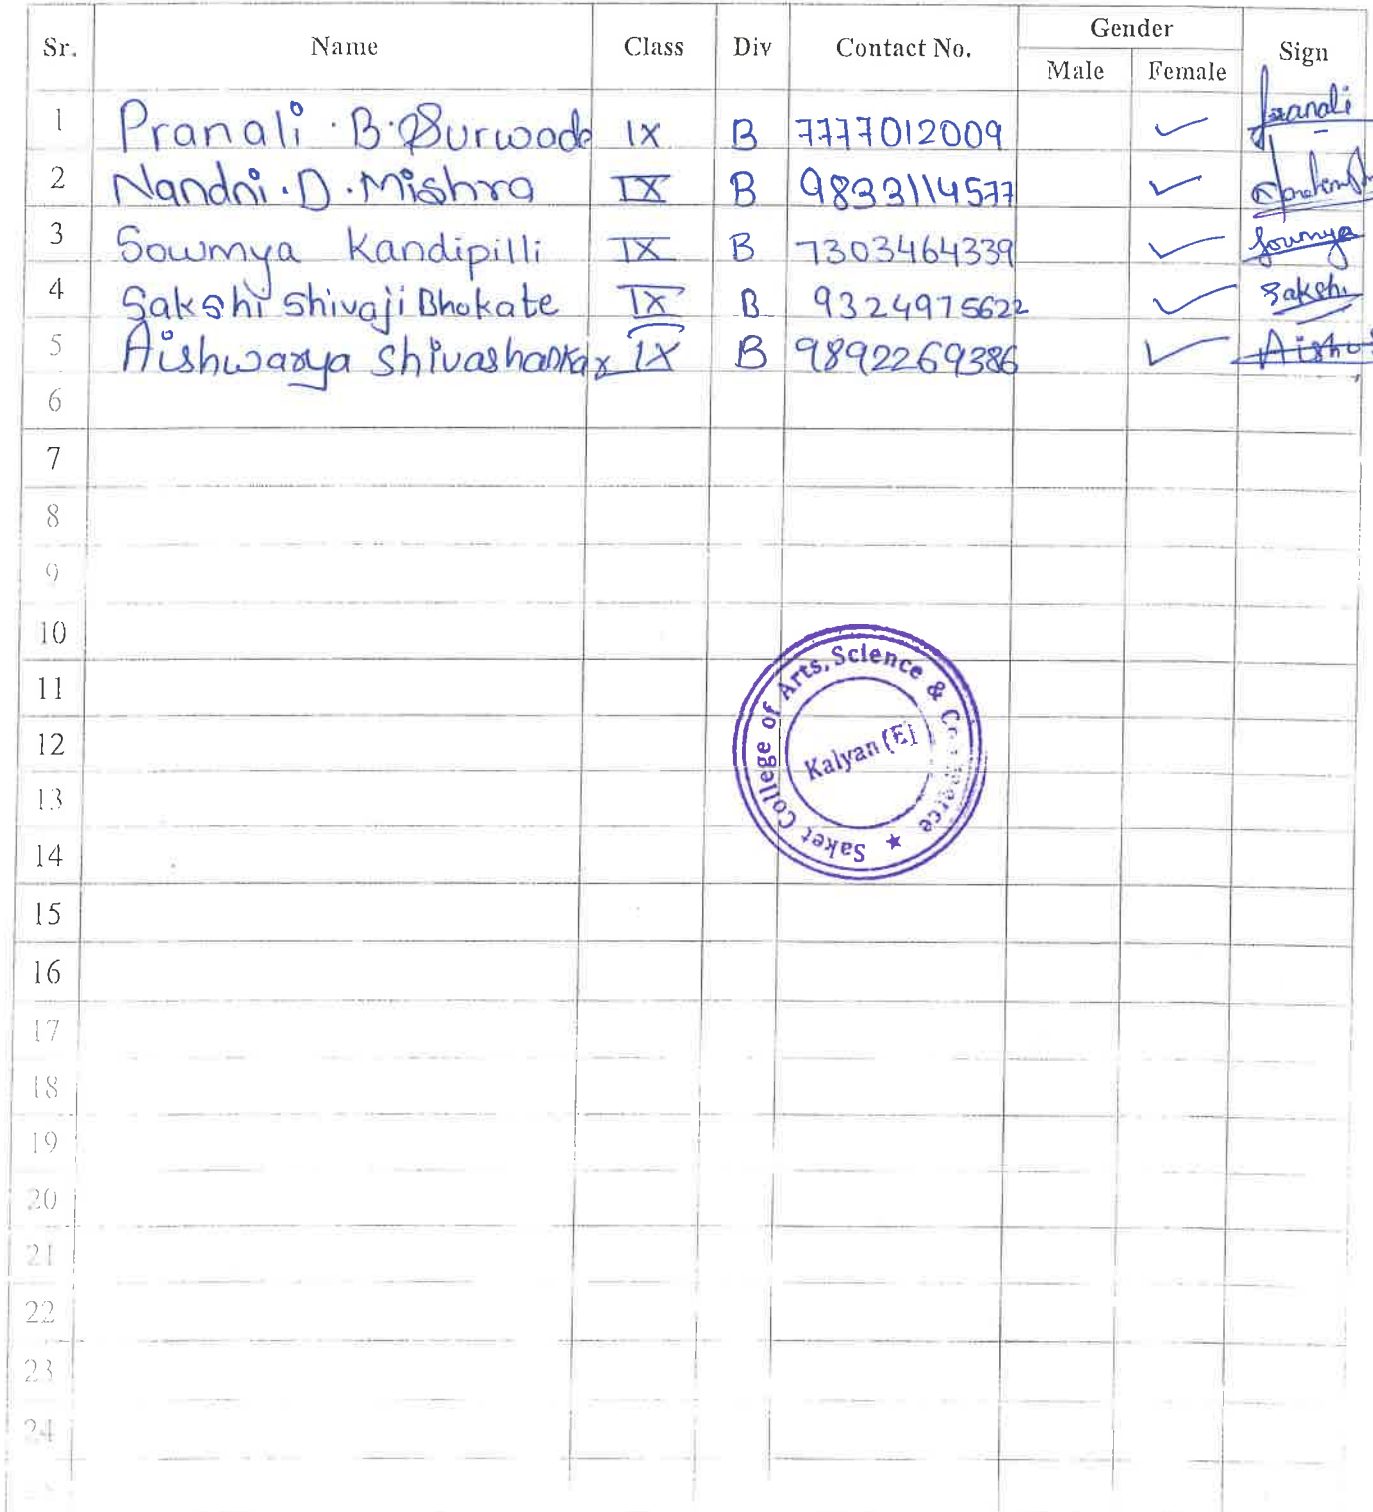 Sr. Name Class Div Contact No. Gender Sign
Male Female
1 Pranali . B. Surwade IX B 7777012009 ✓ Pranali
2 Nandni . D . Mishra IX B 9833114577 ✓
3 Sowmya Kandipilli IX B 7303464339 ✓ Sowmya
4 Sakshi Shivaji Bhokate IX B 9324975622 ✓ Sakshi
5 Aishwarya Shivashankar IX B 9892269386 ✓ Aishw
6
7
8
9
10
11
12
13
14
15
16
17
18
19
20
21
22
23
24
Saket College of Arts, Science & Commerce ★
Kalyan (E)